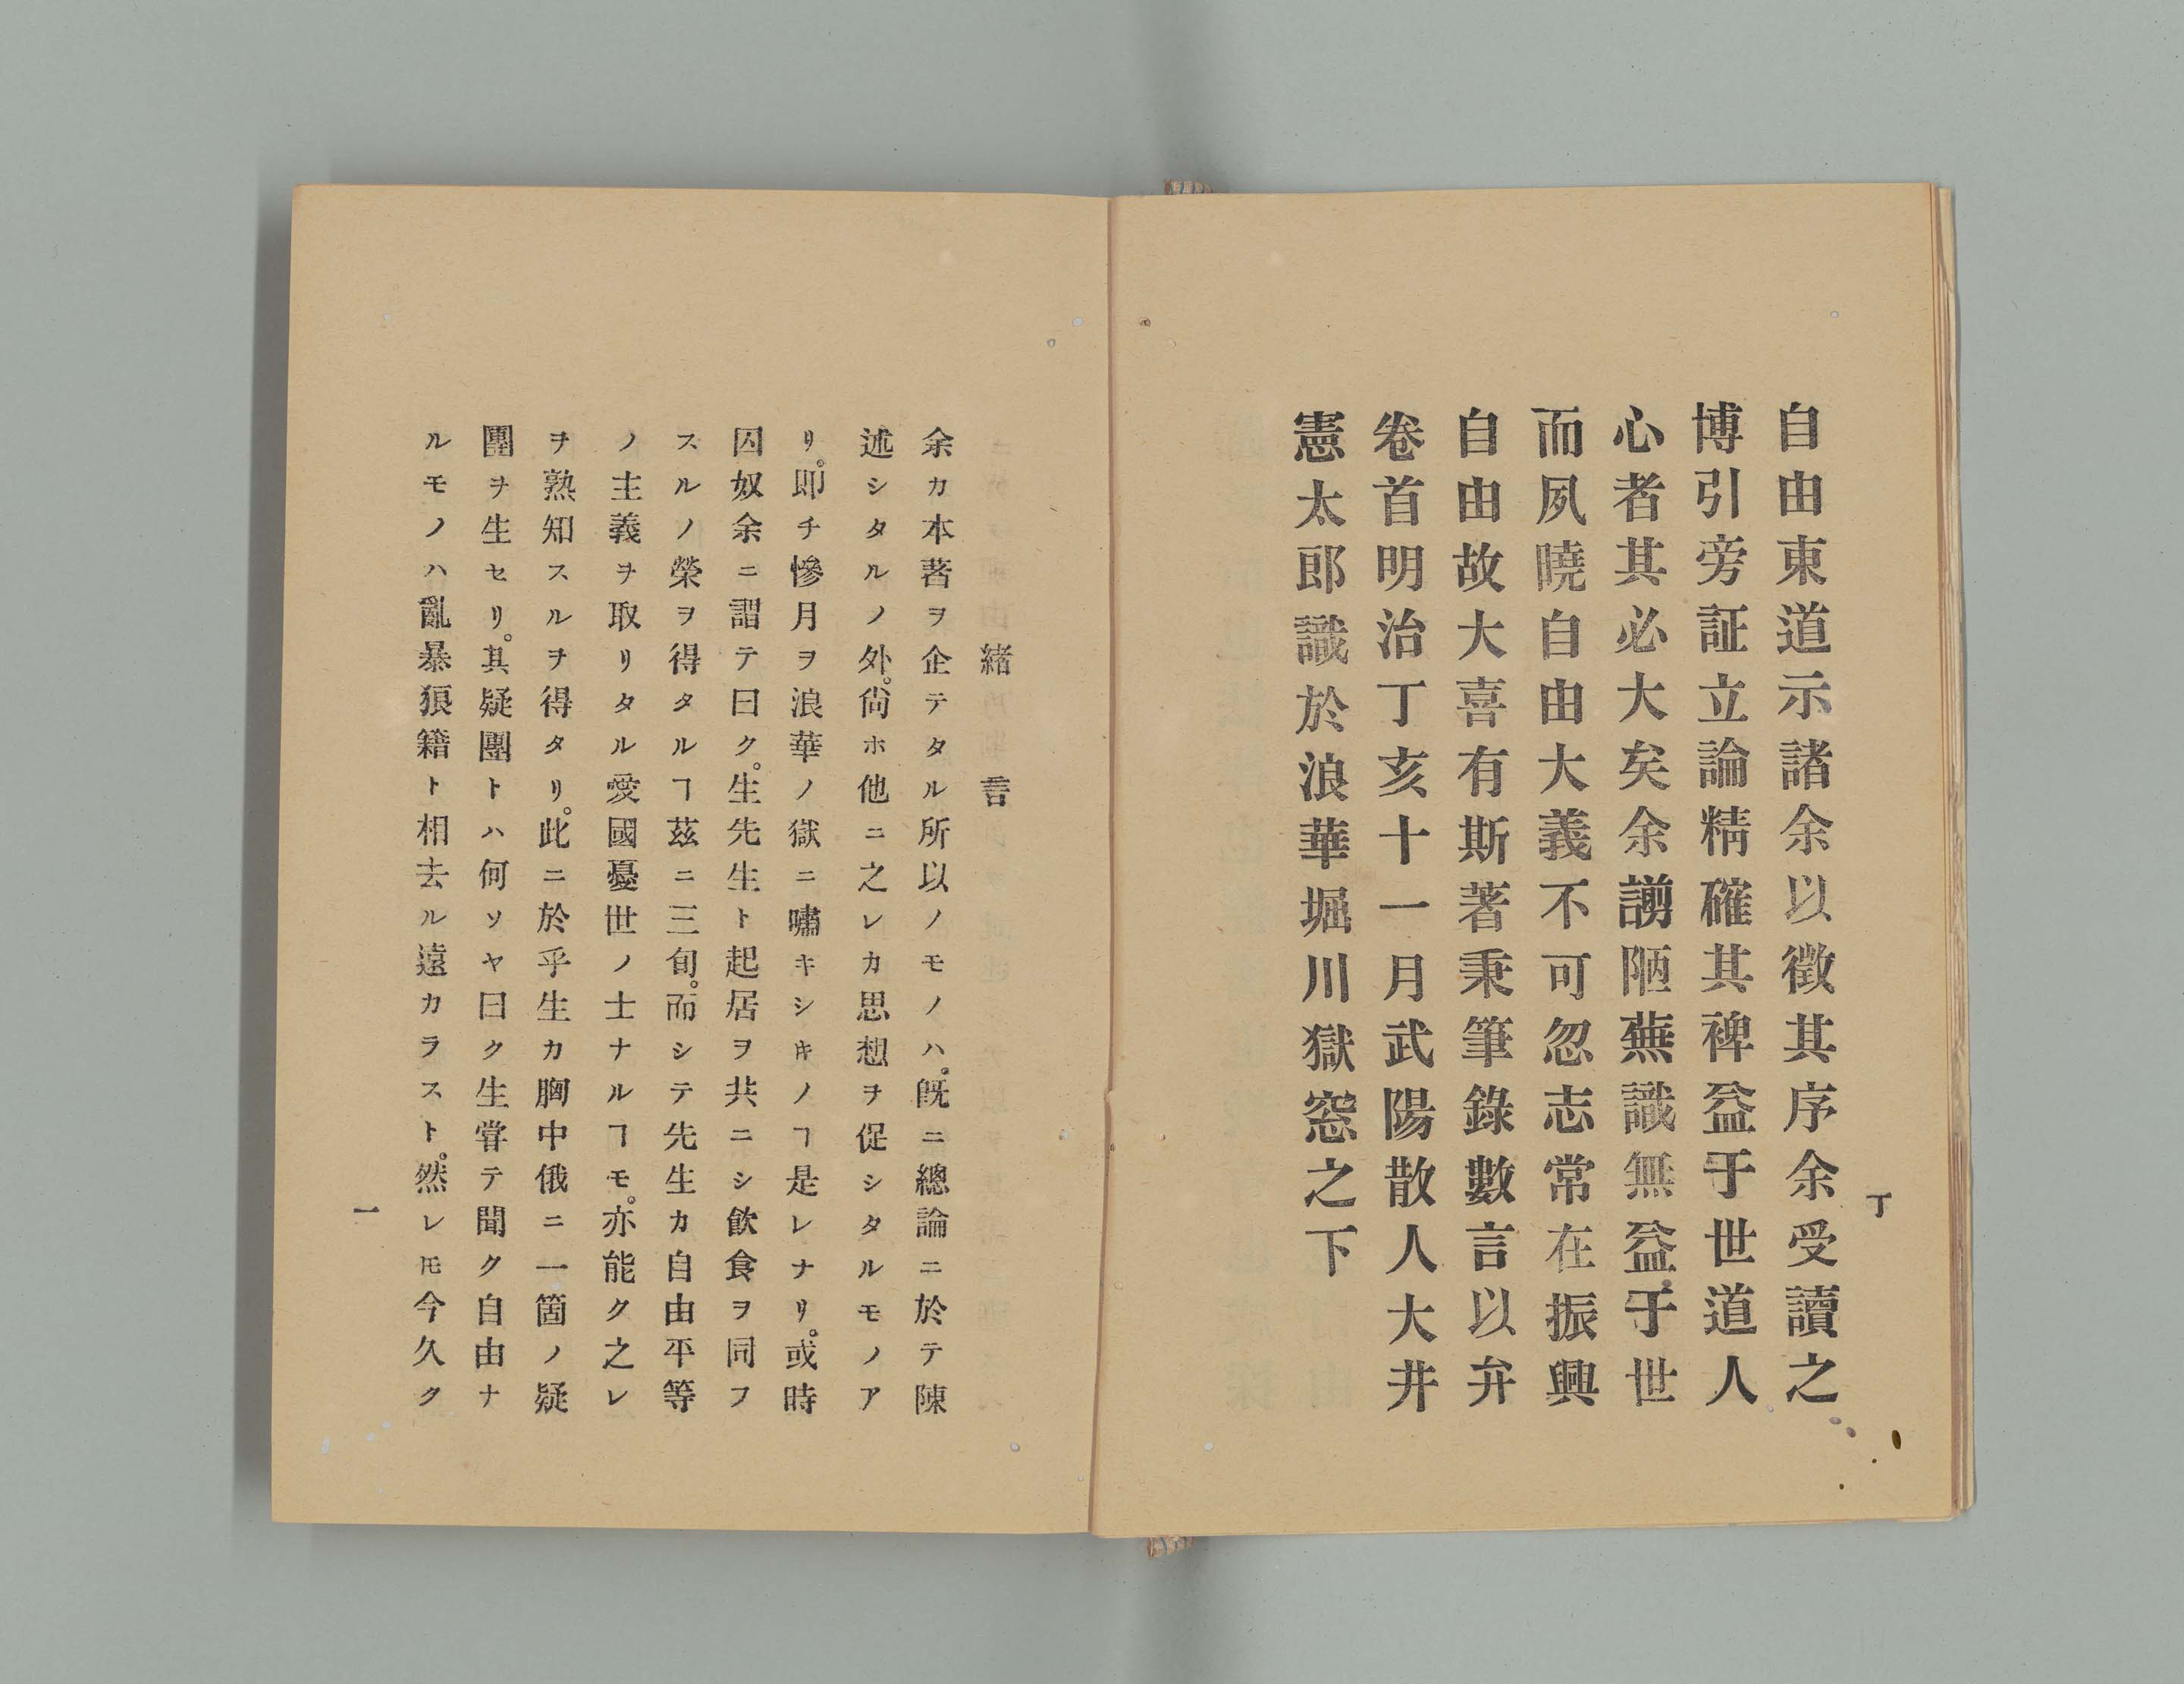 自由東道示諸余以徵其序余受讀之
博引旁証立論精確其裨益于世道人
心者其必大矣余譾陋蕪識無益于世
而夙曉自由大義不可忽志常在振興
自由故大喜有斯著秉筆錄數言以弁
卷首明治丁亥十一月武陽散人大井
憲太郎識於浪華堀川獄窓之下
丁
緒言
余カ本著ヲ企テタル所以ノモノハ。既ニ總論ニ於テ陳
述シタルノ外。尙ホ他ニ之レカ思想ヲ促シタルモノア
リ。卽チ慘月ヲ浪華ノ獄ニ嘯キシ𪜈ノヿ是レナリ。或時
囚奴余ニ謂テ曰ク。生先生ト起居ヲ共ニシ飮食ヲ同フ
スルノ榮ヲ得タルヿ茲ニ三旬。而シテ先生カ自由平等
ノ主義ヲ取リタル愛國憂世ノ士ナルヿモ。亦能ク之レ
ヲ熟知スルヲ得タリ。此ニ於乎生カ胸中俄ニ一箇ノ疑
團ヲ生セリ。其疑團トハ何ソヤ曰ク生甞テ聞ク自由ナ
ルモノハ亂暴狼籍ト相去ル遠カラスト。然レ𪜈今久ク
一